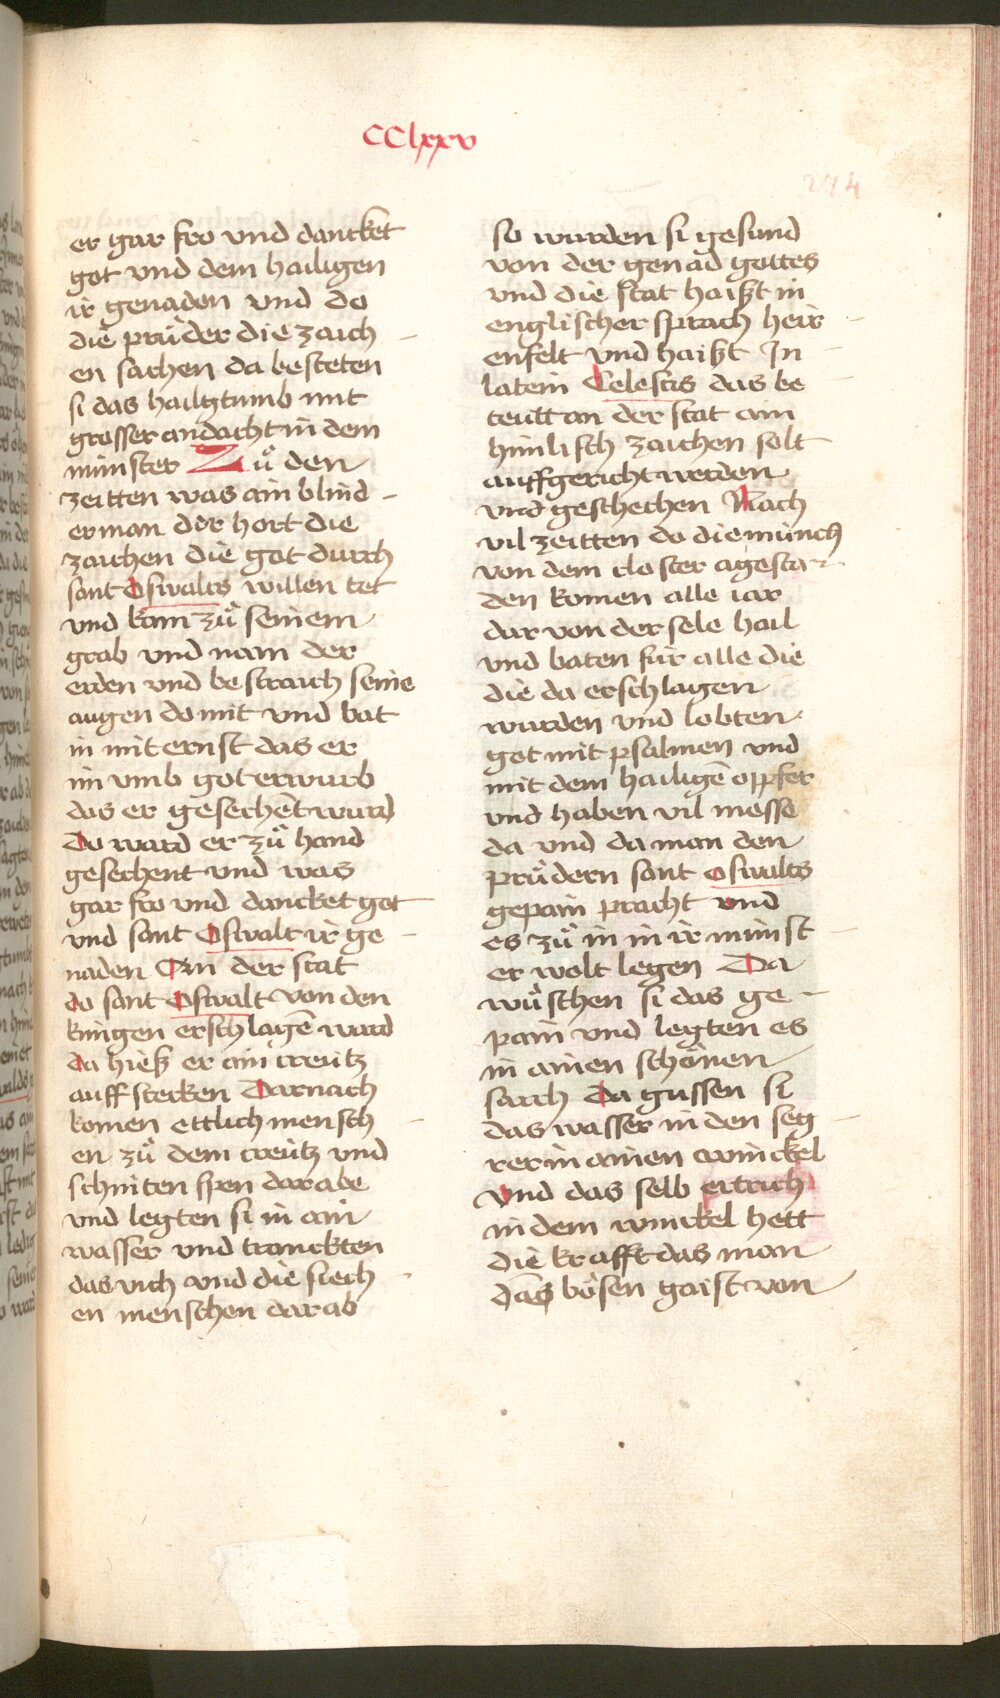 CClxxv
274
er gar fro vnd dancket
got vnd dem hailigen
ir genaden vnd do
die prüder die zaich
en sachen da besteten
si das hailgtumb mit
grosser andacht in dem
münster Zů den
zeitten was ain blind
er man der hort die
zaichen die got durch
sant Oswalts willen tet
vnd kam zů seinem
grab vnd nam der
erden vnd bestraich seine
augen do mit vnd bat
in mit ernst das er
im vmb got erwurb
das er gesechet wurd
Do ward er zů hand
gesechent vnd was
gar fro vnd dancket got
vnd sant Oswalt ir ge
naden An der stat
do sant Oswalt von den
kungen erschlagē ward
da hieß er ain creutz
auff stecken Darnach
komen ettlich mensch
en zů dem creutz vnd
schniten spen dar abe
vnd legten si in ain
wasser vnd tranckten
das vich vnd die siech
en menschen dar ab
so wurden si gesund
von der genad gottes
vnd die stat haißt in
englischer sprach heir
enfelt vnd haißt In
latein Celestis das be
teutt an der stat ain
himlisch zaichen solt
auffgericht werden
vnd geschechen Nach
vil zeitten do die münch
von dem closter agestar
den komen alle iar
dar von der sele hail
vnd baten für alle die
die da erschlagen
wurden vnd lobten
got mit psalmen vnd
mit dem hailigē opfer
vnd haben vil messe
da vnd da man den
prüdern sant Oswalts
gepain pracht vnd
es zů in in ir münst
er wolt legen Da
wůschen si das ge
pain vnd legten es
in ainen schönen
sarch Da gussen si
das wasser in den seg
rer in ainen winckel
Vnd das selb ertrich
in dem winckel hett
die krafft das man
das bösen gaist von